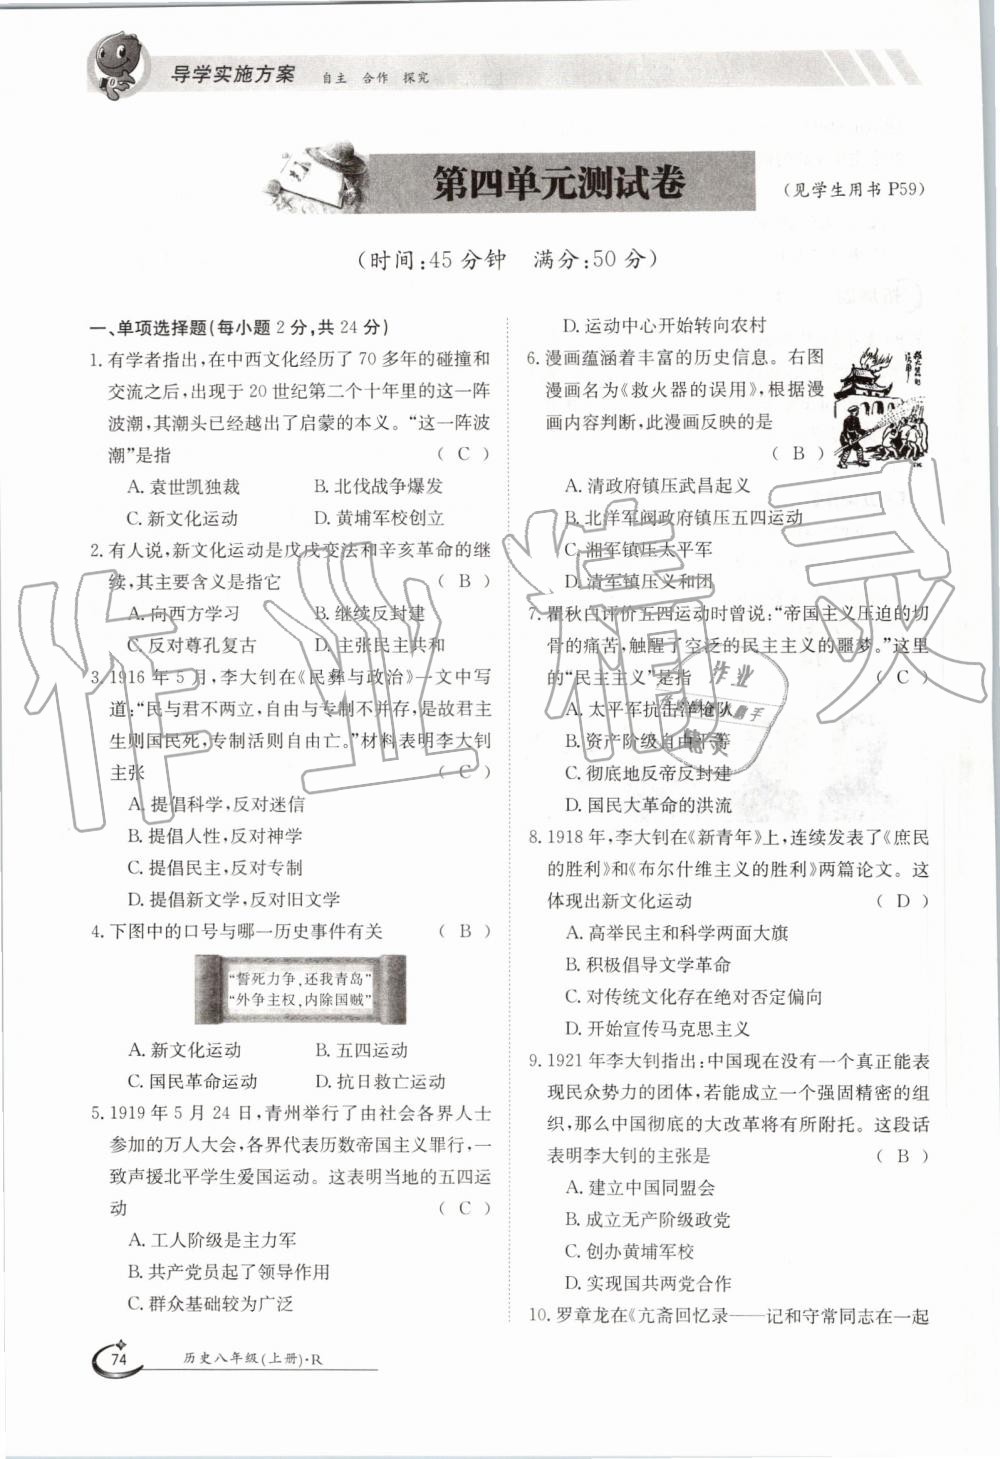 导学实施方案 自主 合作 探究
第四单元测试卷
(见学生用书 P59)
(时间:45 分钟 满分:50 分)
一、单项选择题(每小题 2 分,共 24 分)
1. 有学者指出,在中西文化经历了 70 多年的碰撞和
交流之后,出现于 20 世纪第二个十年里的这一阵
波潮,其潮头已经越出了启蒙的本义。“这一阵波
潮”是指 ( C )
A. 袁世凯独裁 B. 北伐战争爆发
C. 新文化运动 D. 黄埔军校创立
2. 有人说,新文化运动是戊戌变法和辛亥革命的继
续,其主要含义是指它 ( B )
A. 向西方学习 B. 继续反封建
C. 反对尊孔复古 D. 主张民主共和
3. 1916 年 5 月,李大钊在《民彝与政治》一文中写
道:“民与君不两立,自由与专制不并存,是故君主
生则国民死,专制活则自由亡。”材料表明李大钊
主张 ( C )
A. 提倡科学,反对迷信
B. 提倡人性,反对神学
C. 提倡民主,反对专制
D. 提倡新文学,反对旧文学
4. 下图中的口号与哪一历史事件有关 ( B )
“誓死力争,还我青岛”
“外争主权,内除国贼”
A. 新文化运动 B. 五四运动
C. 国民革命运动 D. 抗日救亡运动
5. 1919 年 5 月 24 日,青州举行了由社会各界人士
参加的万人大会,各界代表历数帝国主义罪行,一
致声援北平学生爱国运动。这表明当地的五四运
动 ( C )
A. 工人阶级是主力军
B. 共产党员起了领导作用
C. 群众基础较为广泛
D. 运动中心开始转向农村
6. 漫画蕴涵着丰富的历史信息。右图
漫画名为《救火器的误用》,根据漫
画内容判断,此漫画反映的是
( B )
A. 清政府镇压武昌起义
B. 北洋军阀政府镇压五四运动
C. 湘军镇压太平军
D. 清军镇压义和团
7. 瞿秋白评价五四运动时曾说:“帝国主义压迫的切
骨的痛苦,触醒了空泛的民主主义的噩梦。”这里
的“民主主义”是指 ( C )
A. 太平军抗击洋枪队
B. 资产阶级自由平等
C. 彻底地反帝反封建
D. 国民大革命的洪流
8. 1918 年,李大钊在《新青年》上,连续发表了《庶民
的胜利》和《布尔什维主义的胜利》两篇论文。这
体现出新文化运动 ( D )
A. 高举民主和科学两面大旗
B. 积极倡导文学革命
C. 对传统文化存在绝对否定偏向
D. 开始宣传马克思主义
9. 1921 年李大钊指出:中国现在没有一个真正能表
现民众势力的团体,若能成立一个强固精密的组
织,那么中国彻底的大改革将有所附托。这段话
表明李大钊的主张是 ( B )
A. 建立中国同盟会
B. 成立无产阶级政党
C. 创办黄埔军校
D. 实现国共两党合作
10. 罗章龙在《亢斋回忆录——记和守常同志在一起
74 历史八年级(上册)·R
作业精灵